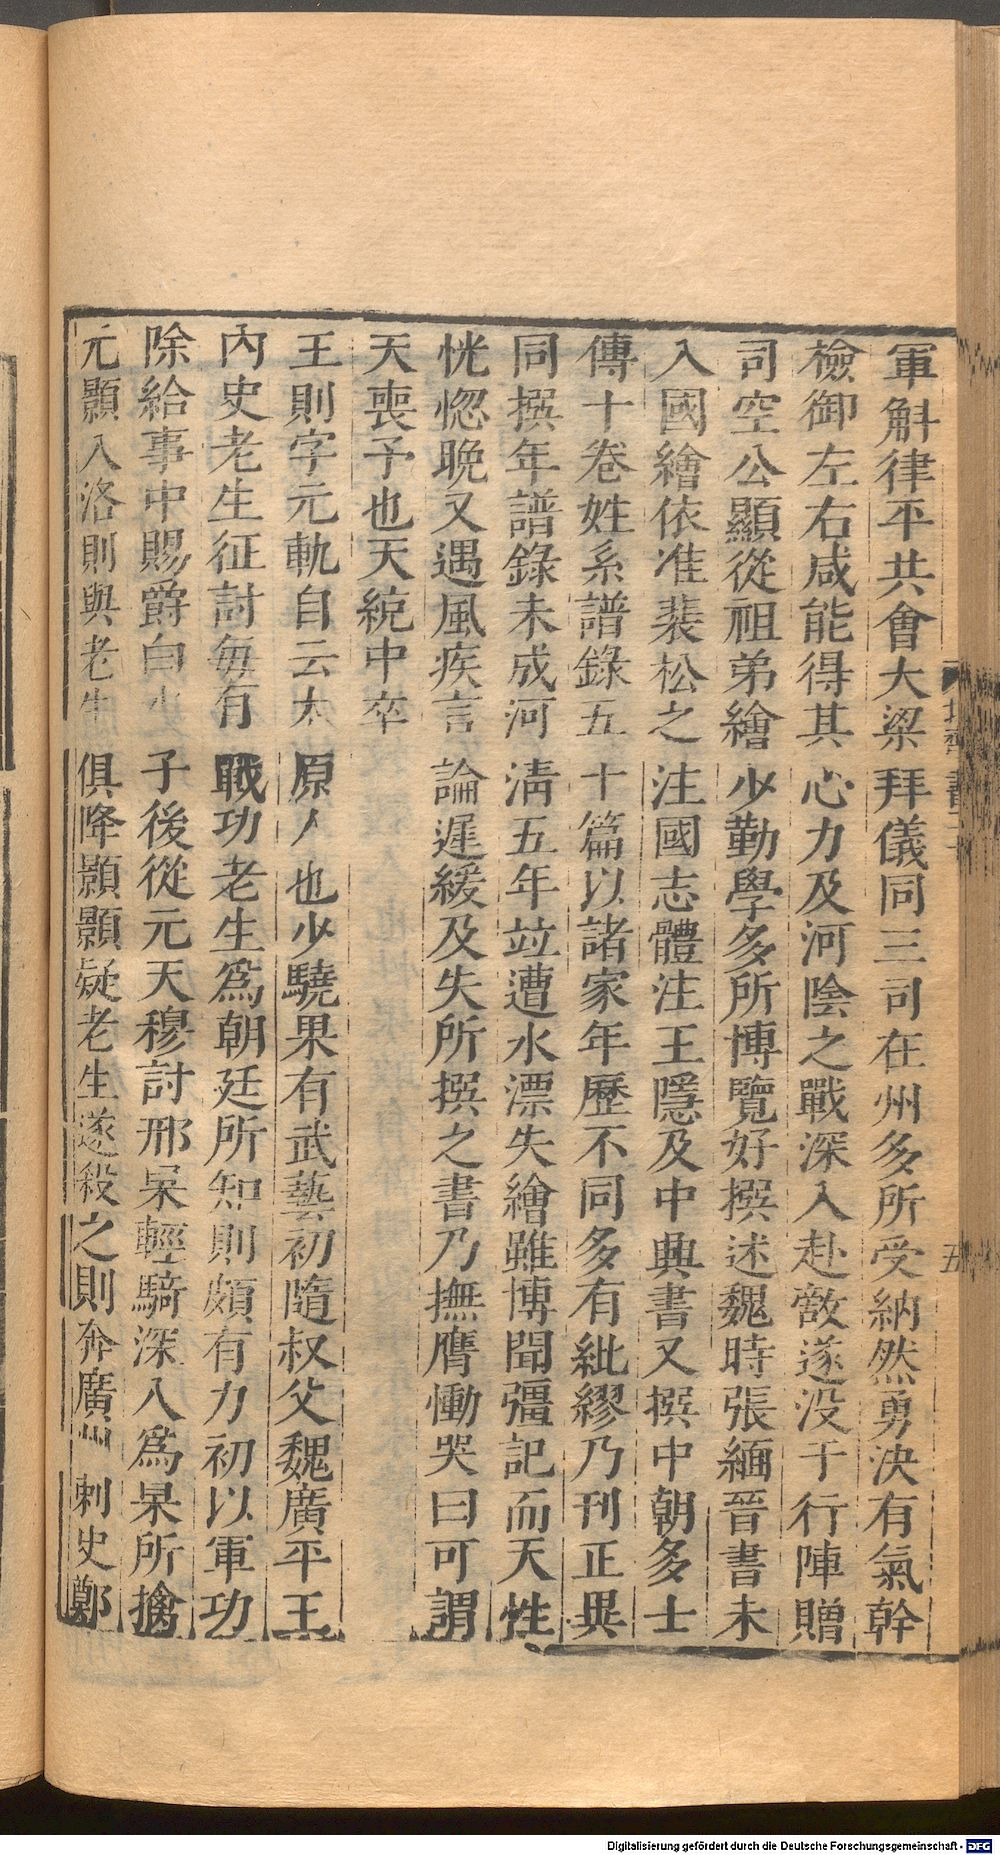 軍斛律平共會大梁拜儀同三司在州多所受納然勇決有氣幹
檢御左右咸能得其心力及河陰之戰深入赴敵遂没于行陣贈
司空公顯從祖弟繪少勤學多所博覽好撰述魏時張緬晉書未
入國繪依准裴松之注國志體注王隱及中興書又撰中朝多士
傳十卷姓系譜錄五十篇以諸家年歷不同多有紕繆乃刊正異
同撰年譜錄未成河淸五年竝遭水漂失繪雖博聞彊記而天性
恍惚晩又遇風疾言論遲緩及失所撰之書乃撫膺慟哭曰可謂
天喪予也天統中卒
王則字元軌自云太原人也少驍果有武藝初隨叔父魏廣平王
內史老生征討每有戰功老生爲朝廷所知則頗有力初以軍功
除給事中賜爵白水子後從元天穆討邢杲輕騎深入爲杲所擒
元顥入洛則與老生俱降顥顥疑老生遂殺之則奔廣州刺史鄭
五
Digitalisierung gefördert durch die Deutsche Forschungsgemeinschaft - DFG